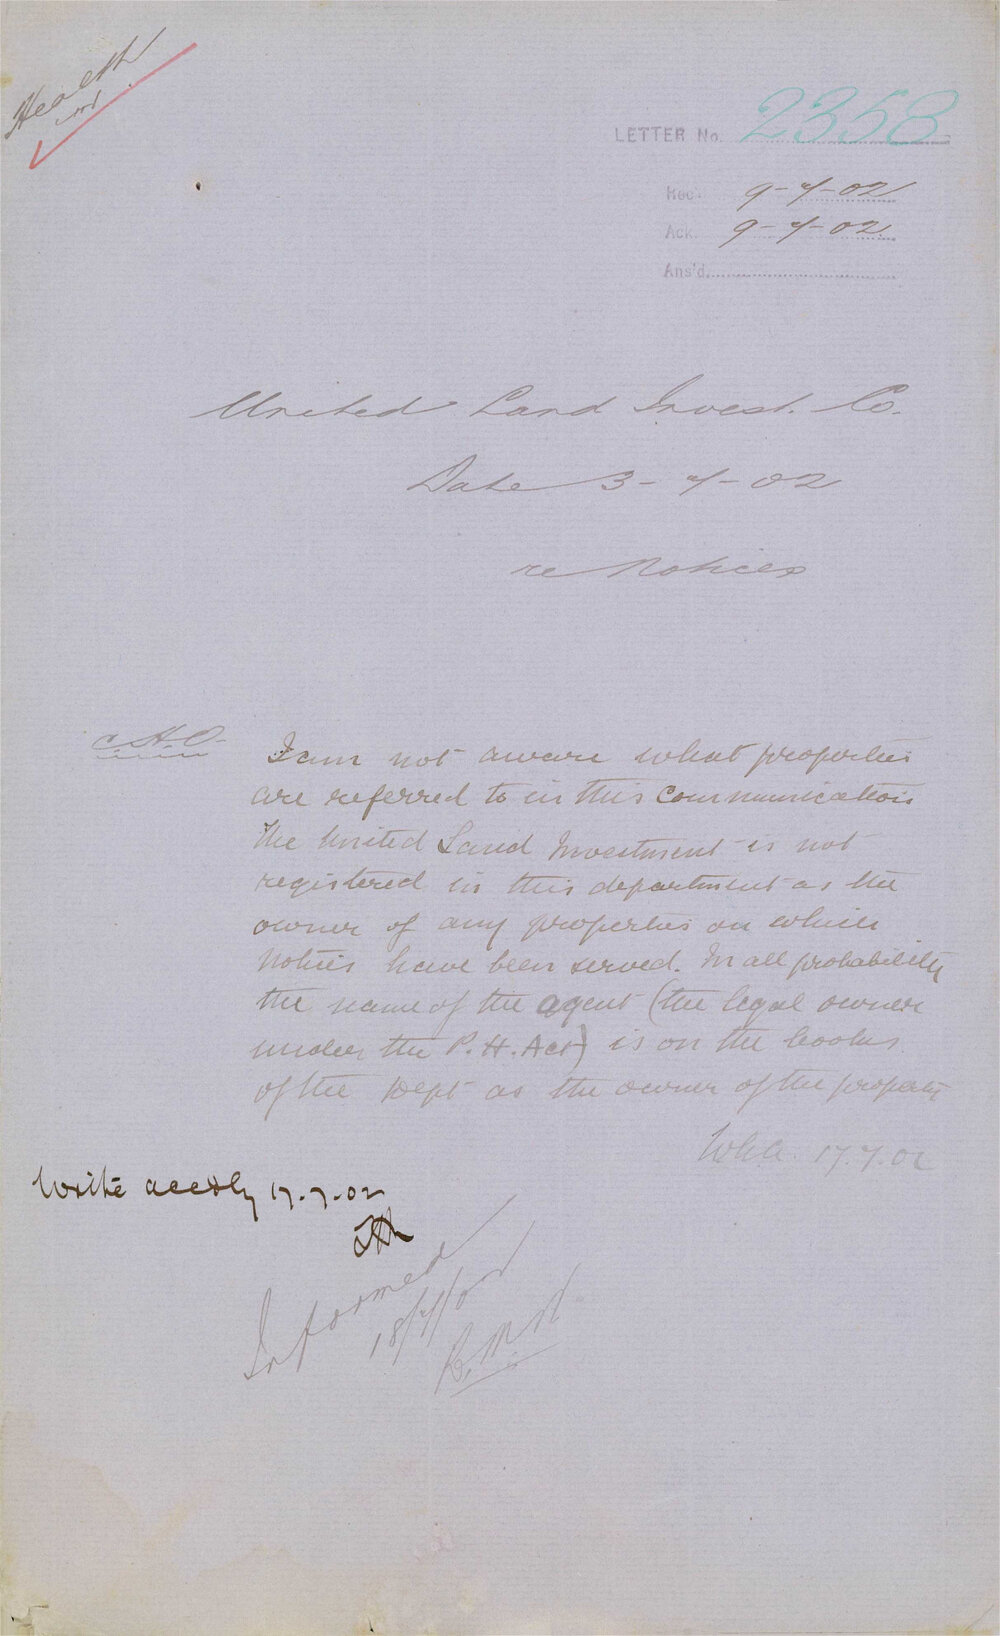 Health
LETTER No. 2358
Rec. 9-7-02
Ack. 9-7-02
Ans'd.
United Land Invest. Co.
Date 3-7-02
re Notices
C.H.O.
I am not aware what properties
are referred to in this communication
The United Land Investment is not
registered in this department as the
owner of any properties on which
Notices have been served. In all probability
the name of the agent (the legal owner
under the P.H. Act) is on the books
of the Dept as the owner of the property
17.7.02
Write accdly 17.7.02
Informed
18/7/02